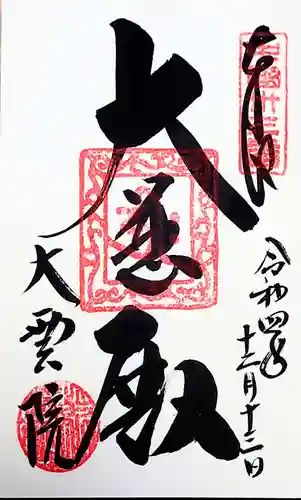 奉拝
令和四年
十二月十三日
大慈殿
大雲院